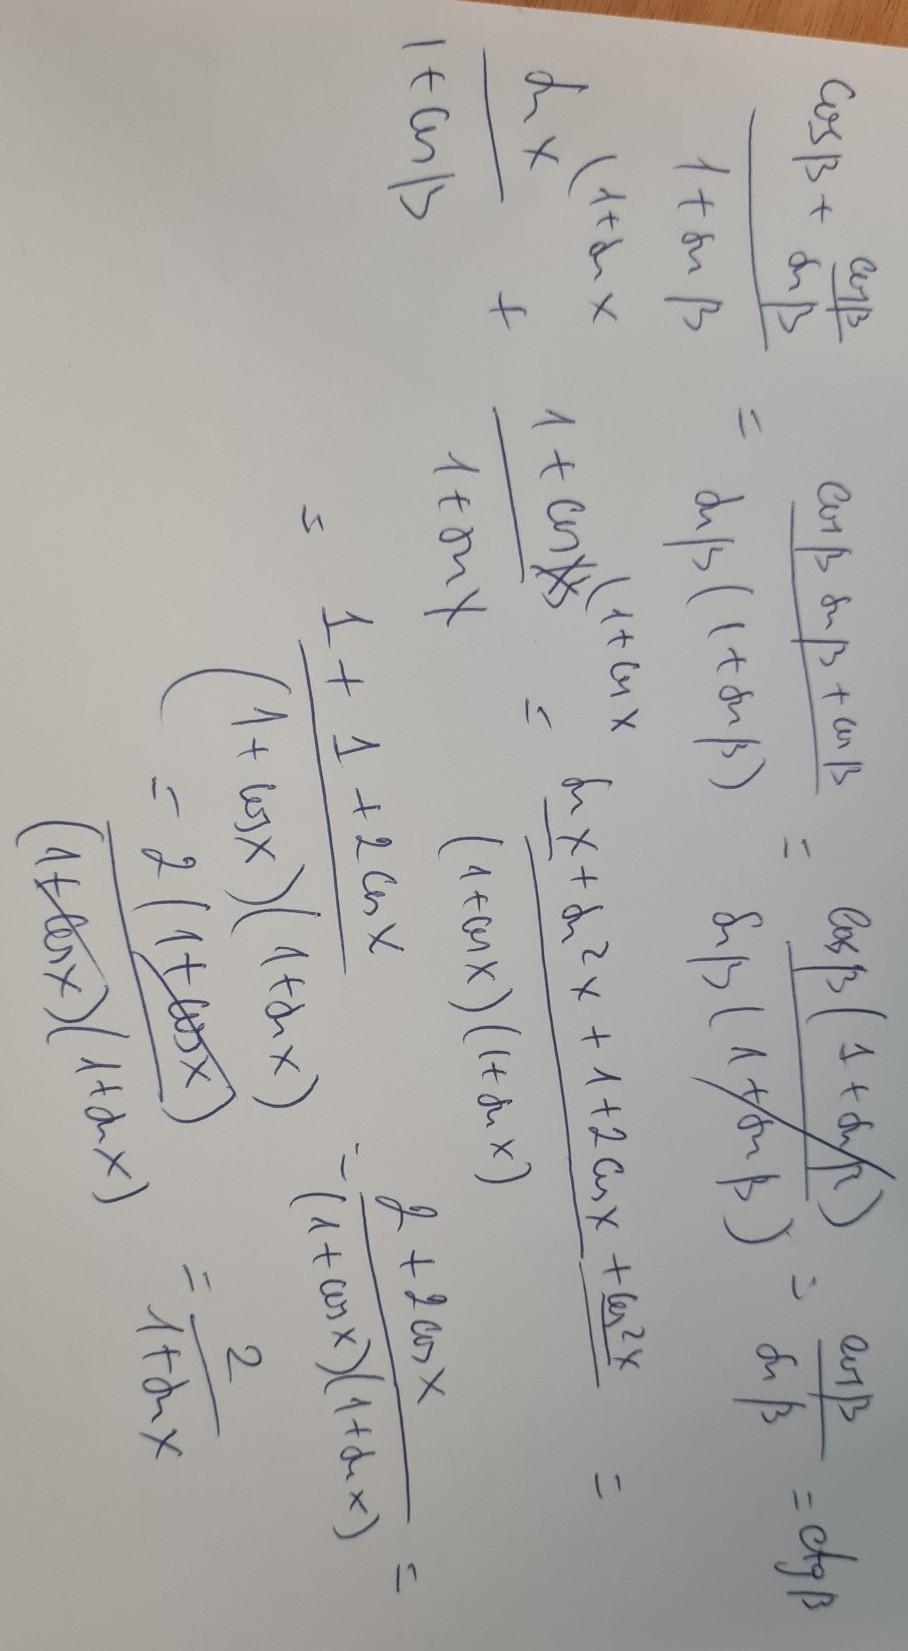 (cosβ + cosβ/sinβ)/(1 + sinβ) = (cosβ sinβ + cosβ)/(sinβ(1 + sinβ)) = cosβ(1 + sinβ)/(sinβ(1 + sinβ)) = cosβ/sinβ = ctgβ
(1+sin x (1+cos x
sin x/(1 + cosβ) + (1 + cos x)/(1 + sin x) = (sin x + sin²x + 1 + 2cos x + cos²x)/((1+cos x)(1+sin x)) =
= (1 + 1 + 2cos x)/((1 + cos x)(1 + sin x)) = (2 + 2cos x)/((1 + cos x)(1 + sin x)) =
= 2(1 + cos x)/((1 + cos x)(1 + sin x)) = 2/(1 + sin x)